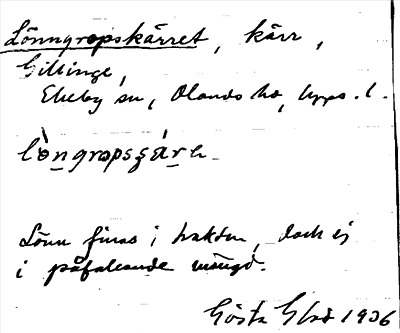 Lönngropskärret, kärr,
Gillinge,
Ekeby sn, Olands hd, Upps. l.
lò̱ngropsʒáṟ
Lönn finns i trakten, dock ej
i påfallande mängd.
Gösta 1936